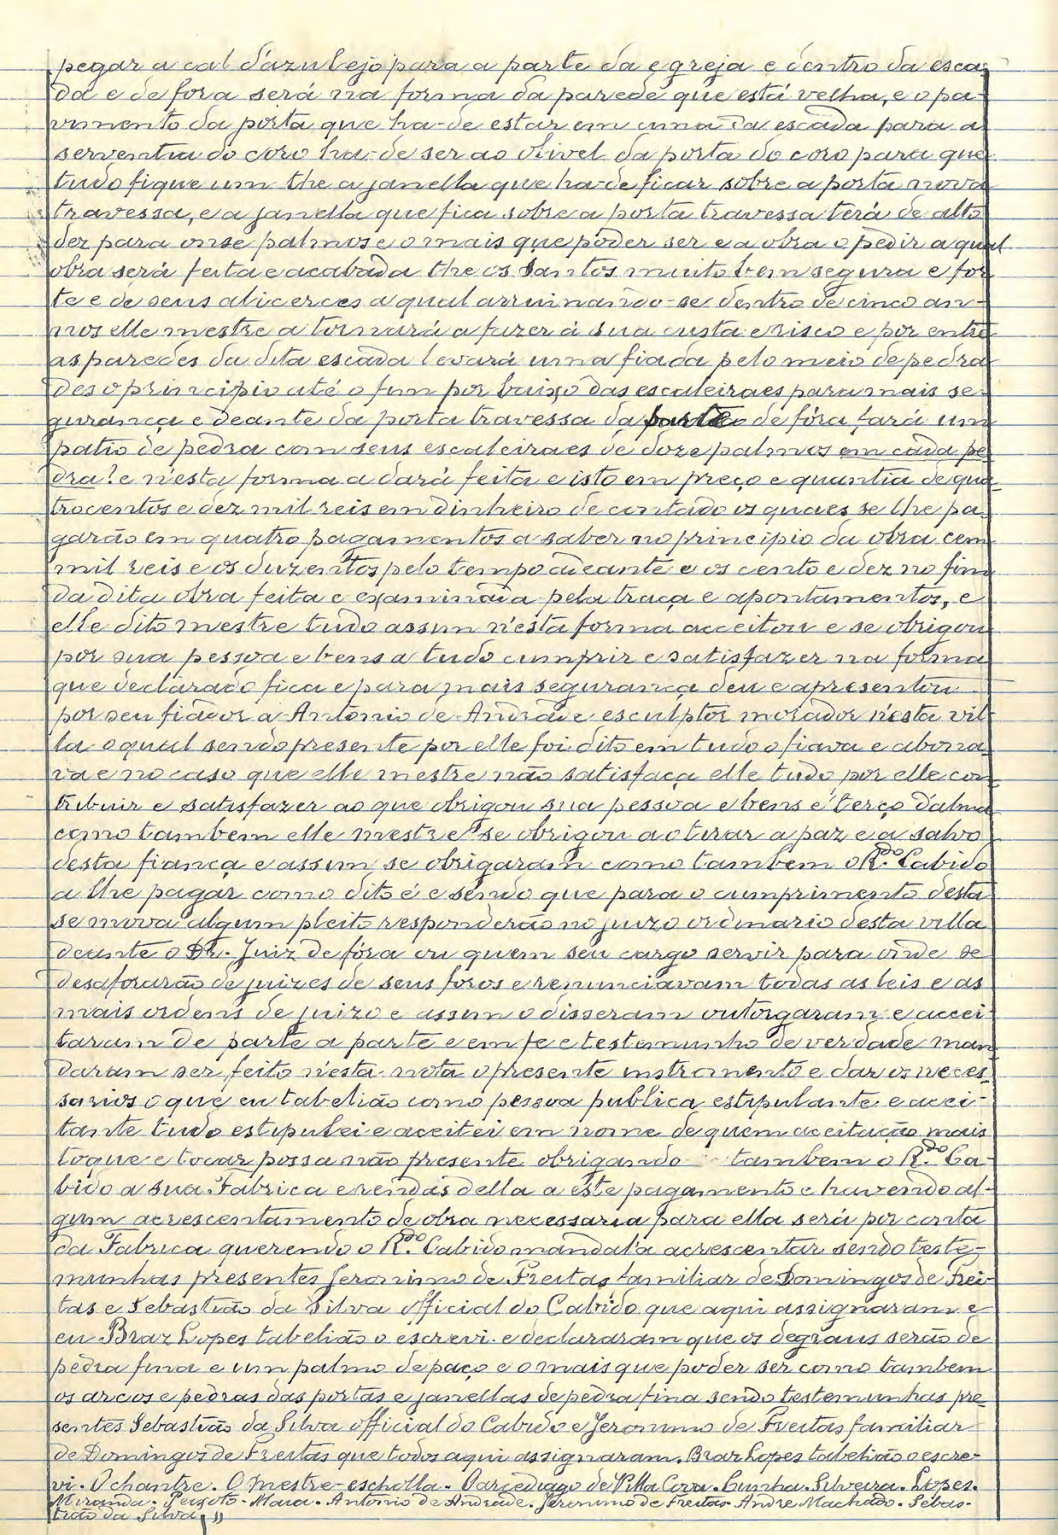 pegar a cal d'azulejo para a parte da egreja e dentro da esca-
da e de fora será na forma da parede que está velha, e o pa-
vimento da porta que ha-de estar em cima da escada para a
serventia do coro ha-de ser ao olivel da porta do coro para que
tudo fique um the a janella que ha-de ficar sobre a porta nova
travessa, e a janella que fica sobre a porta travessa terá de alto
dez para onse palmos e o mais que poder ser e a obra o pedir a qual
obra será feita e acabada the os Santos muito bem segura e for-
te e de seus alicerces a qual arruinando-se dentro de cinco an-
nos elle mestre a tornará a fazer á sua custa e risco e por entre
as paredes da dita escada levará uma fiada pelo meio de pedra
des o principio até o fim por baixo das escaleiraes para mais se-
gurança e deante da porta travessa da parte de fóra fará um
patio de pedra com seus escaleiraes de doze palmos em cada pe-
dra? e n'esta forma a dará feita e isto em preço e quantia de qua-
trocentos e dez mil reis em dinheiro de contado os quaes se lhe pa-
garão em quatro pagamentos a saber no principio da obra cem
mil reis e os duzentos pelo tempo adeante e os cento e dez no fim
da dita obra feita e examinada pela traça e apontamentos, e
elle dito mestre tudo assim n'esta forma acceitou e se obrigou
por sua pessoa e bens a tudo cumprir e satisfazer na forma
que declarado fica e para mais segurança deu e apresentou
por seu fiador a Antonio de Andrade esculptor morador n'esta vil-
la o qual sendo presente por elle foi dito em tudo o fiava e abona-
va e no caso que elle mestre não satisfaça elle tudo por elle con-
tribuir e satisfazer ao que obrigou sua pessoa e bens e terço d'alma
como tambem elle mestre se obrigou a o tirar a paz e a salvo
desta fiança e assim se obrigaram como tambem o R.do Cabido
a lhe pagar como dito é e sendo que para o cumprimento desta
se mova algum pleito responderão no juizo ordinario desta villa
deante o Dr. Juiz de fóra ou quem seu cargo servir para onde se
desaforarão de juizes de seus foros e renunciavam todas as leis e as
mais ordens de juizo e assim o disseram outorgaram e accei-
taram de parte a parte e em fe e testemunho de verdade man-
daram ser feito n'esta nota o presente instromento e dar os neces-
sarios o que eu tabelião como pessoa publica estipulante e acei-
tante tudo estipulei e aceitei em nome de quem aceitação mais
toque e tocar possa não presente obrigando tambem o R.do Ca-
bido a sua Fabrica e rendas della a este pagamento e havendo al-
gum acrescentamento de obra necessaria para ella será por conta
da Fabrica querendo o R.do Cabido mandal'a acrescentar sendo teste-
munhas presentes Jeronimo de Freitas familiar de Domingos de Frei-
tas e Sebastião da Silva official do Cabido que aqui assignaram e
eu Braz Lopes tabelião o escrevi. e declararam que os degraus serão de
pedra fina e um palmo de paço e o mais que poder ser como tambem
os arcos e pedras das portas e janellas de pedra fina sendo testemunhas pre-
sentes Sebastião da Silva official do Cabido e Jeronimo de Freitas familiar
de Domingos de Freitas que todos aqui assignaram. Braz Lopes tabelião o escre-
vi. O chantre. O mestre-eschola. O arcediago de Villa Cova. Cunha. Silveira. Lopes.
Miranda. Peixoto. Maia. Antonio de Andrade. Jeronimo de Freitas. André Machado. Sebas-
tião da Silva. "